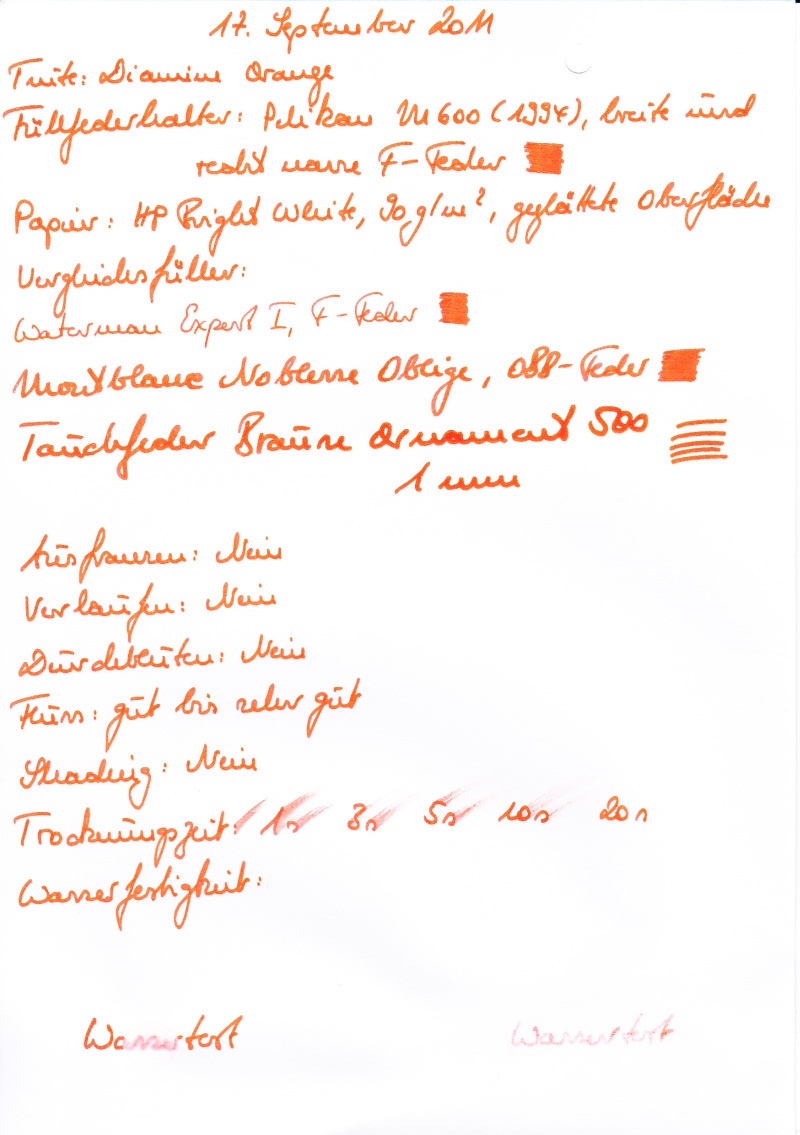 17. September 2011
Tinte: Diamine Orange
Füllfederhalter: Pelikan M600 (1994), breite und
recht nasse F-Feder
Papier: HP Bright White, 90g/m², geglättete Oberfläche
Vergleichsfüller:
Waterman Expert I, F-Feder
Montblanc Noblesse Oblige, OBB-Feder
Tauchfeder Brause Ornament 500
1 mm
Ausfransen: Nein
Verlaufen: Nein
Durchbluten: Nein
Fluss: gut bis sehr gut
Shading: Nein
Trocknungszeit: 1s 3s 5s 10s 20s
Wasserfestigkeit:
Wassertest Wassertest